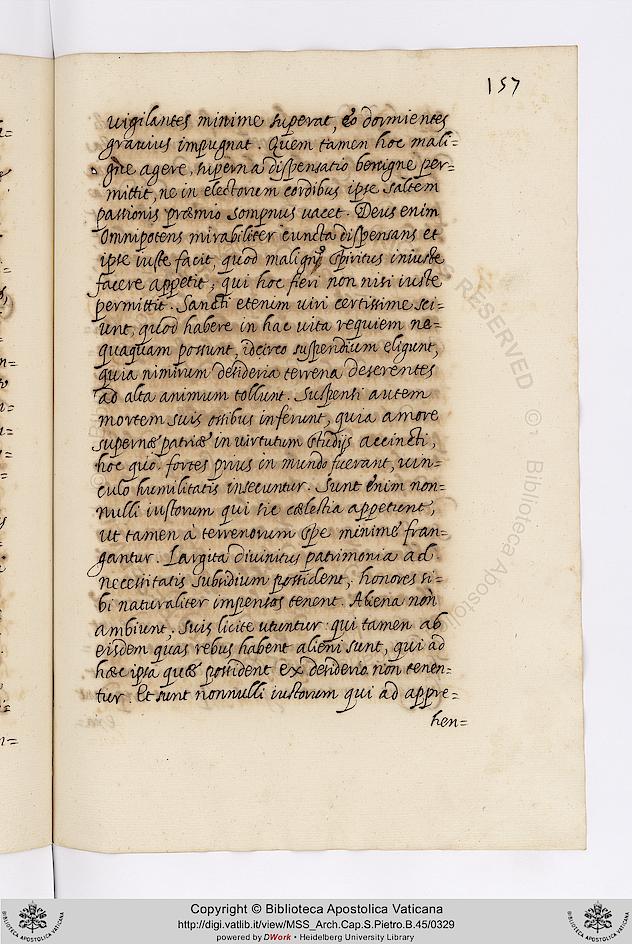 157
uigilantes minime superat, eo dormientes
grauius impugnat. Quem tamen hoc mali=
gne agere, superna dispensatio benigne per=
mittit, ne in electorum cordibus ipse saltem
passionis præmio sompnus uacet. Deus enim
Omnipotens mirabiliter cuncta dispensans et
ipse iuste facit, quod malignus spiritus iniuste
facere appetit, qui hoc fieri non nisi iuste
permittit. Sancti etenim uiri certissime sci=
unt, quod habere in hac uita requiem ne=
quaquam possunt, idcirco suspendium eligunt,
quia nimirum desideria terrena deserentes
ad alta animum tollunt. Suspensi autem
mortem suis ossibus inferunt, quia amore
supernæ patriæ in uirtutum studijs accincti,
hoc quo fortes prius in mundo fuerant, uin=
culo humilitatis insecuntur. Sunt enim non=
nulli iustorum qui sic cælestia appetunt,
ut tamen à terrenorum spe minime fran=
gantur. Largita diuinitus patrimonia ad
necessitatis subsidium possident, honores si=
bi naturaliter impensos tenent. Aliena non
ambiunt, suis licite utuntur: qui tamen ab
eisdem quas rebus habent alieni sunt, qui ad
hæc ipsa quæ possident ex desiderio non tenen=
tur. Et sunt nonnulli iustorum qui ad appre=
hen=
RESERVED © Biblioteca Apostolica
Copyright © Biblioteca Apostolica Vaticana
http://digi.vatlib.it/view/MSS_Arch.Cap.S.Pietro.B.45/0329
powered by DWork • Heidelberg University Library